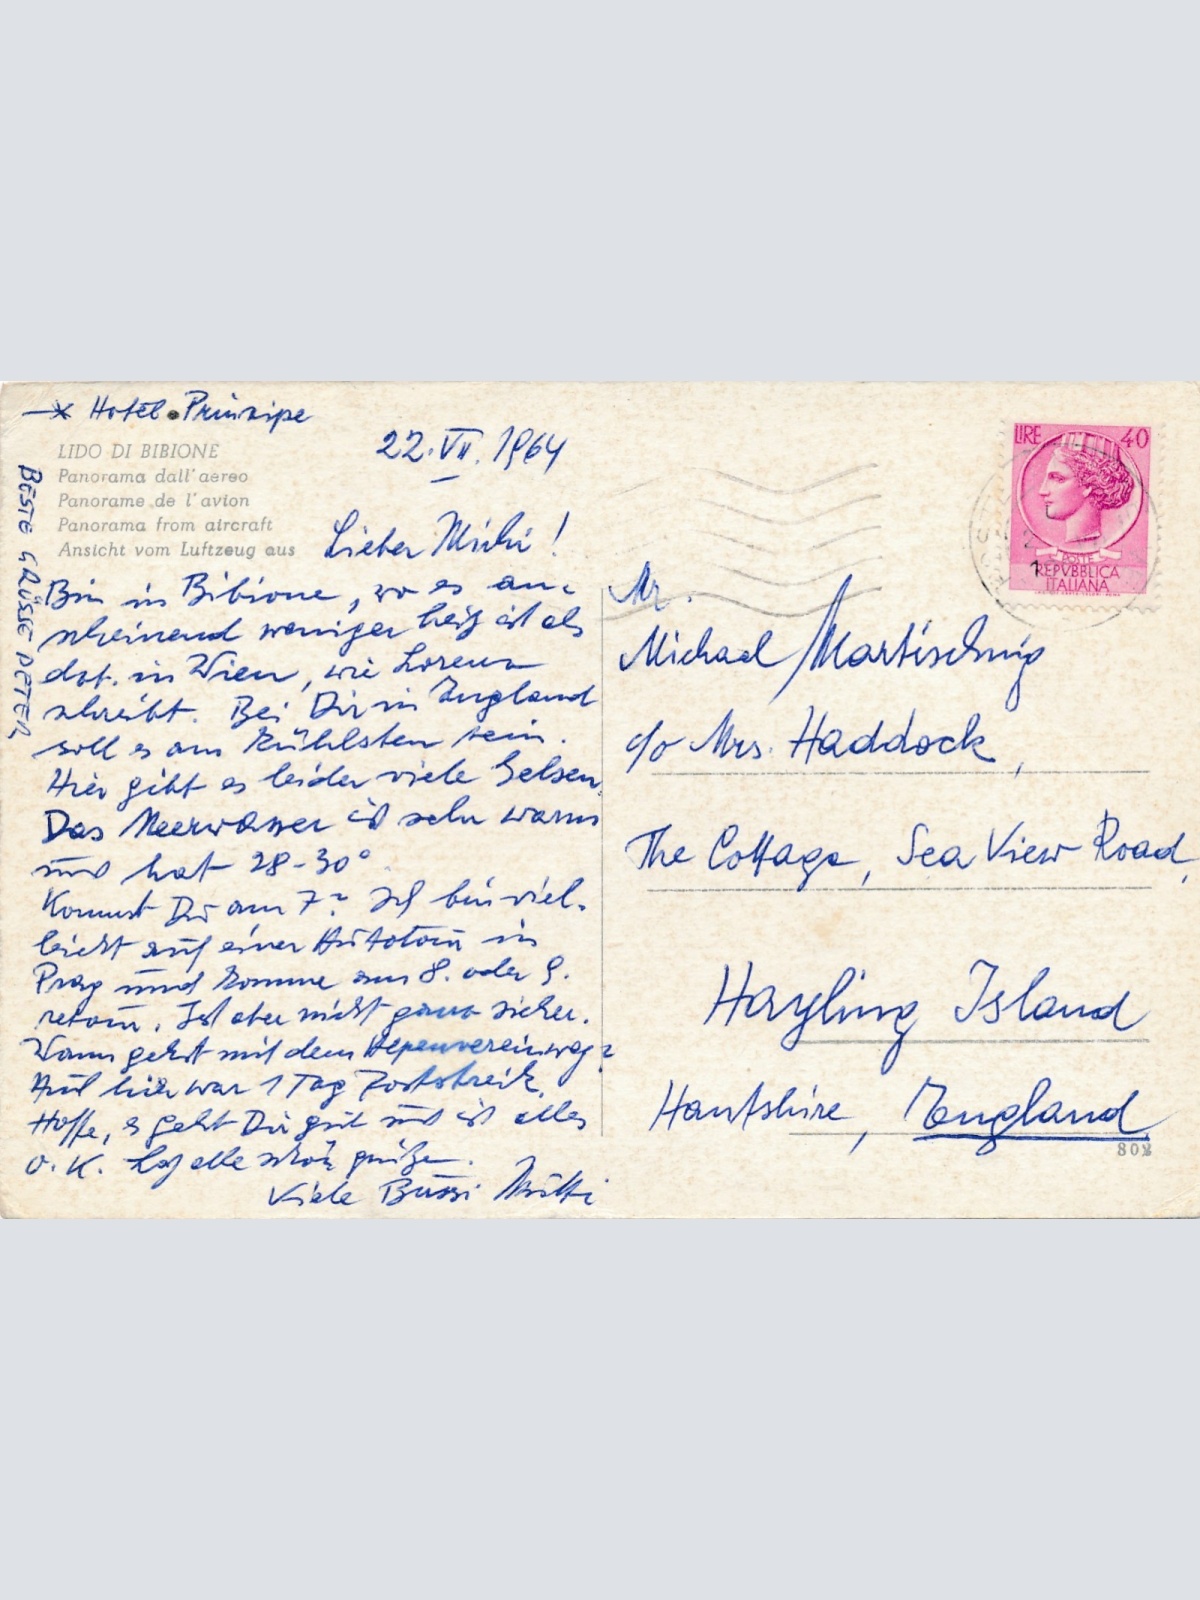 →x Hotel Prinzipe
LIDO DI BIBIONE
Panorama dall'aereo
Panorame de l'avion
Panorama from aircraft
Ansicht vom Luftzeug aus
22.VII.1964
Lieber Michi!
Bin in Bibione, wo es an-
scheinend weniger heiß ist als
dzt. in Wien, wie Lorenz
schreibt. Bei Dir in England
soll es am kühlsten sein.
Hier gibt es leider viele Gelsen.
Das Meerwasser ist sehr warm
und hat 28-30°.
Kommst Du am 7? Ich bin viel-
leicht auf einer Autotour in
Prag und komme am 8. oder 9.
retour. Ist aber nicht ganz sicher.
Wann gehst mit dem Alpenverein weg?
Auch hier war 1 Tag Poststreik.
Hoffe, es geht Dir gut und ist alles
O.K. Laß alle schön grüßen.
Viele Bussi Mutti
BESTE GRÜSSE PETER
LIRE 40
POSTE
REPVBBLICA
ITALIANA
Mr.
Michael Martischnig
c/o Mrs. Haddock,
The Cottage, Sea View Road,
Hayling Island
Hantshire, England
802